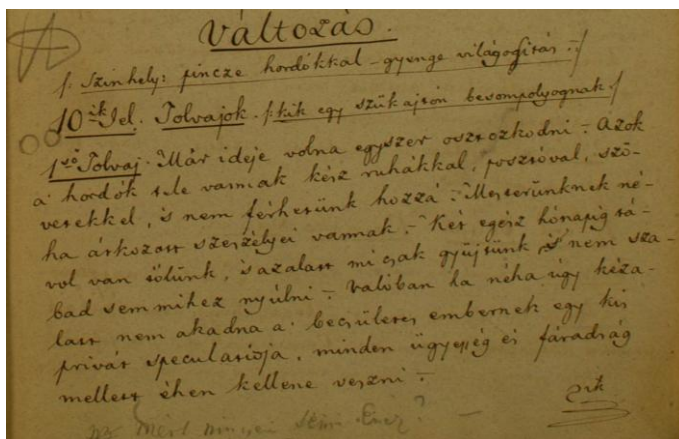 Változás.
/: Szinhely: pincze hordókkal – gyenge világositás :/
10ik Jel. Tolvajok. /: kik egy szük ajtón besompolyognak :/
1ső Tolvaj. Már ideje volna egyszer osztozkodni – Azok
a' hordók tele vannak kész ruhákkal, posztóval, szö-
vetekkel, is nem férhetünk hozzá – Mesterünknek né-
ha átkozott szeszélyei vannak – Két egész hónapig tá-
vol van tőlünk, is azalatt mi csak gyüjtsünk is nem sza-
bad semmihez nyúlni – valóban ha néha úgy kéza-
latt nem akadna a' becsületes embernek egy kis
privát speculatiója, minden ügyesség és fáradság
mellett éhen kellene veszni –
ik